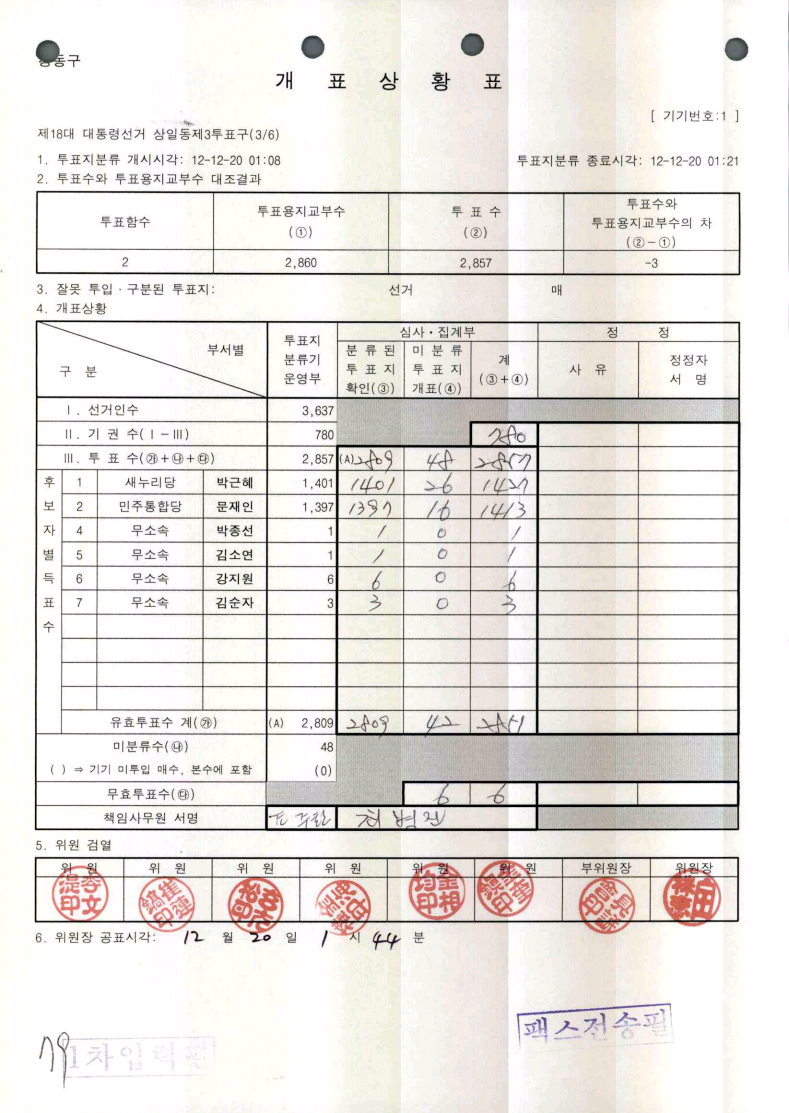 동구
개 표 상 황 표
[ 기기번호:1 ]
제18대 대통령선거 상일동제3투표구(3/6)
1. 투표지분류 개시시각: 12-12-20 01:08 투표지분류 종료시각: 12-12-20 01:21
2. 투표수와 투표용지교부수 대조결과
투표함수 투표용지교부수 (①) 투 표 수 (②) 투표수와 투표용지교부수의 차 (②-①)
2 2,860 2,857 -3
3. 잘못 투입·구분된 투표지: 선거 매
4. 개표상황
구 분 부서별 투표지 분류기 운영부 심사·집계부 정 정
분 류 된 투 표 지 확인(③) 미 분 류 투 표 지 개표(④) 계 (③+④) 사 유 정정자 서 명
Ⅰ. 선거인수 3,637
Ⅱ. 기 권 수(Ⅰ-Ⅲ) 780 780
Ⅲ. 투 표 수(㉮+㉯+㉰) 2,857 (A)2809 48 2857
후보자별득표수
1 새누리당 박근혜 1,401 1401 26 1427
2 민주통합당 문재인 1,397 1397 16 1413
4 무소속 박종선 1 1 0 1
5 무소속 김소연 1 1 0 1
6 무소속 강지원 6 6 0 6
7 무소속 김순자 3 3 0 3
유효투표수 계(㉮) (A) 2,809 2809 42 2851
미분류수(㉯) 48
( ) ⇒ 기기 미투입 매수, 본수에 포함 (0)
무효투표수(㉰) 6 6
책임사무원 서명
5. 위원 검열
위 원 위 원 위 원 위 원 위 원 위 원 부위원장 위원장
6. 위원장 공표시각: 12 월 20 일 1 시 44 분
팩스전송필
79 1차입력필